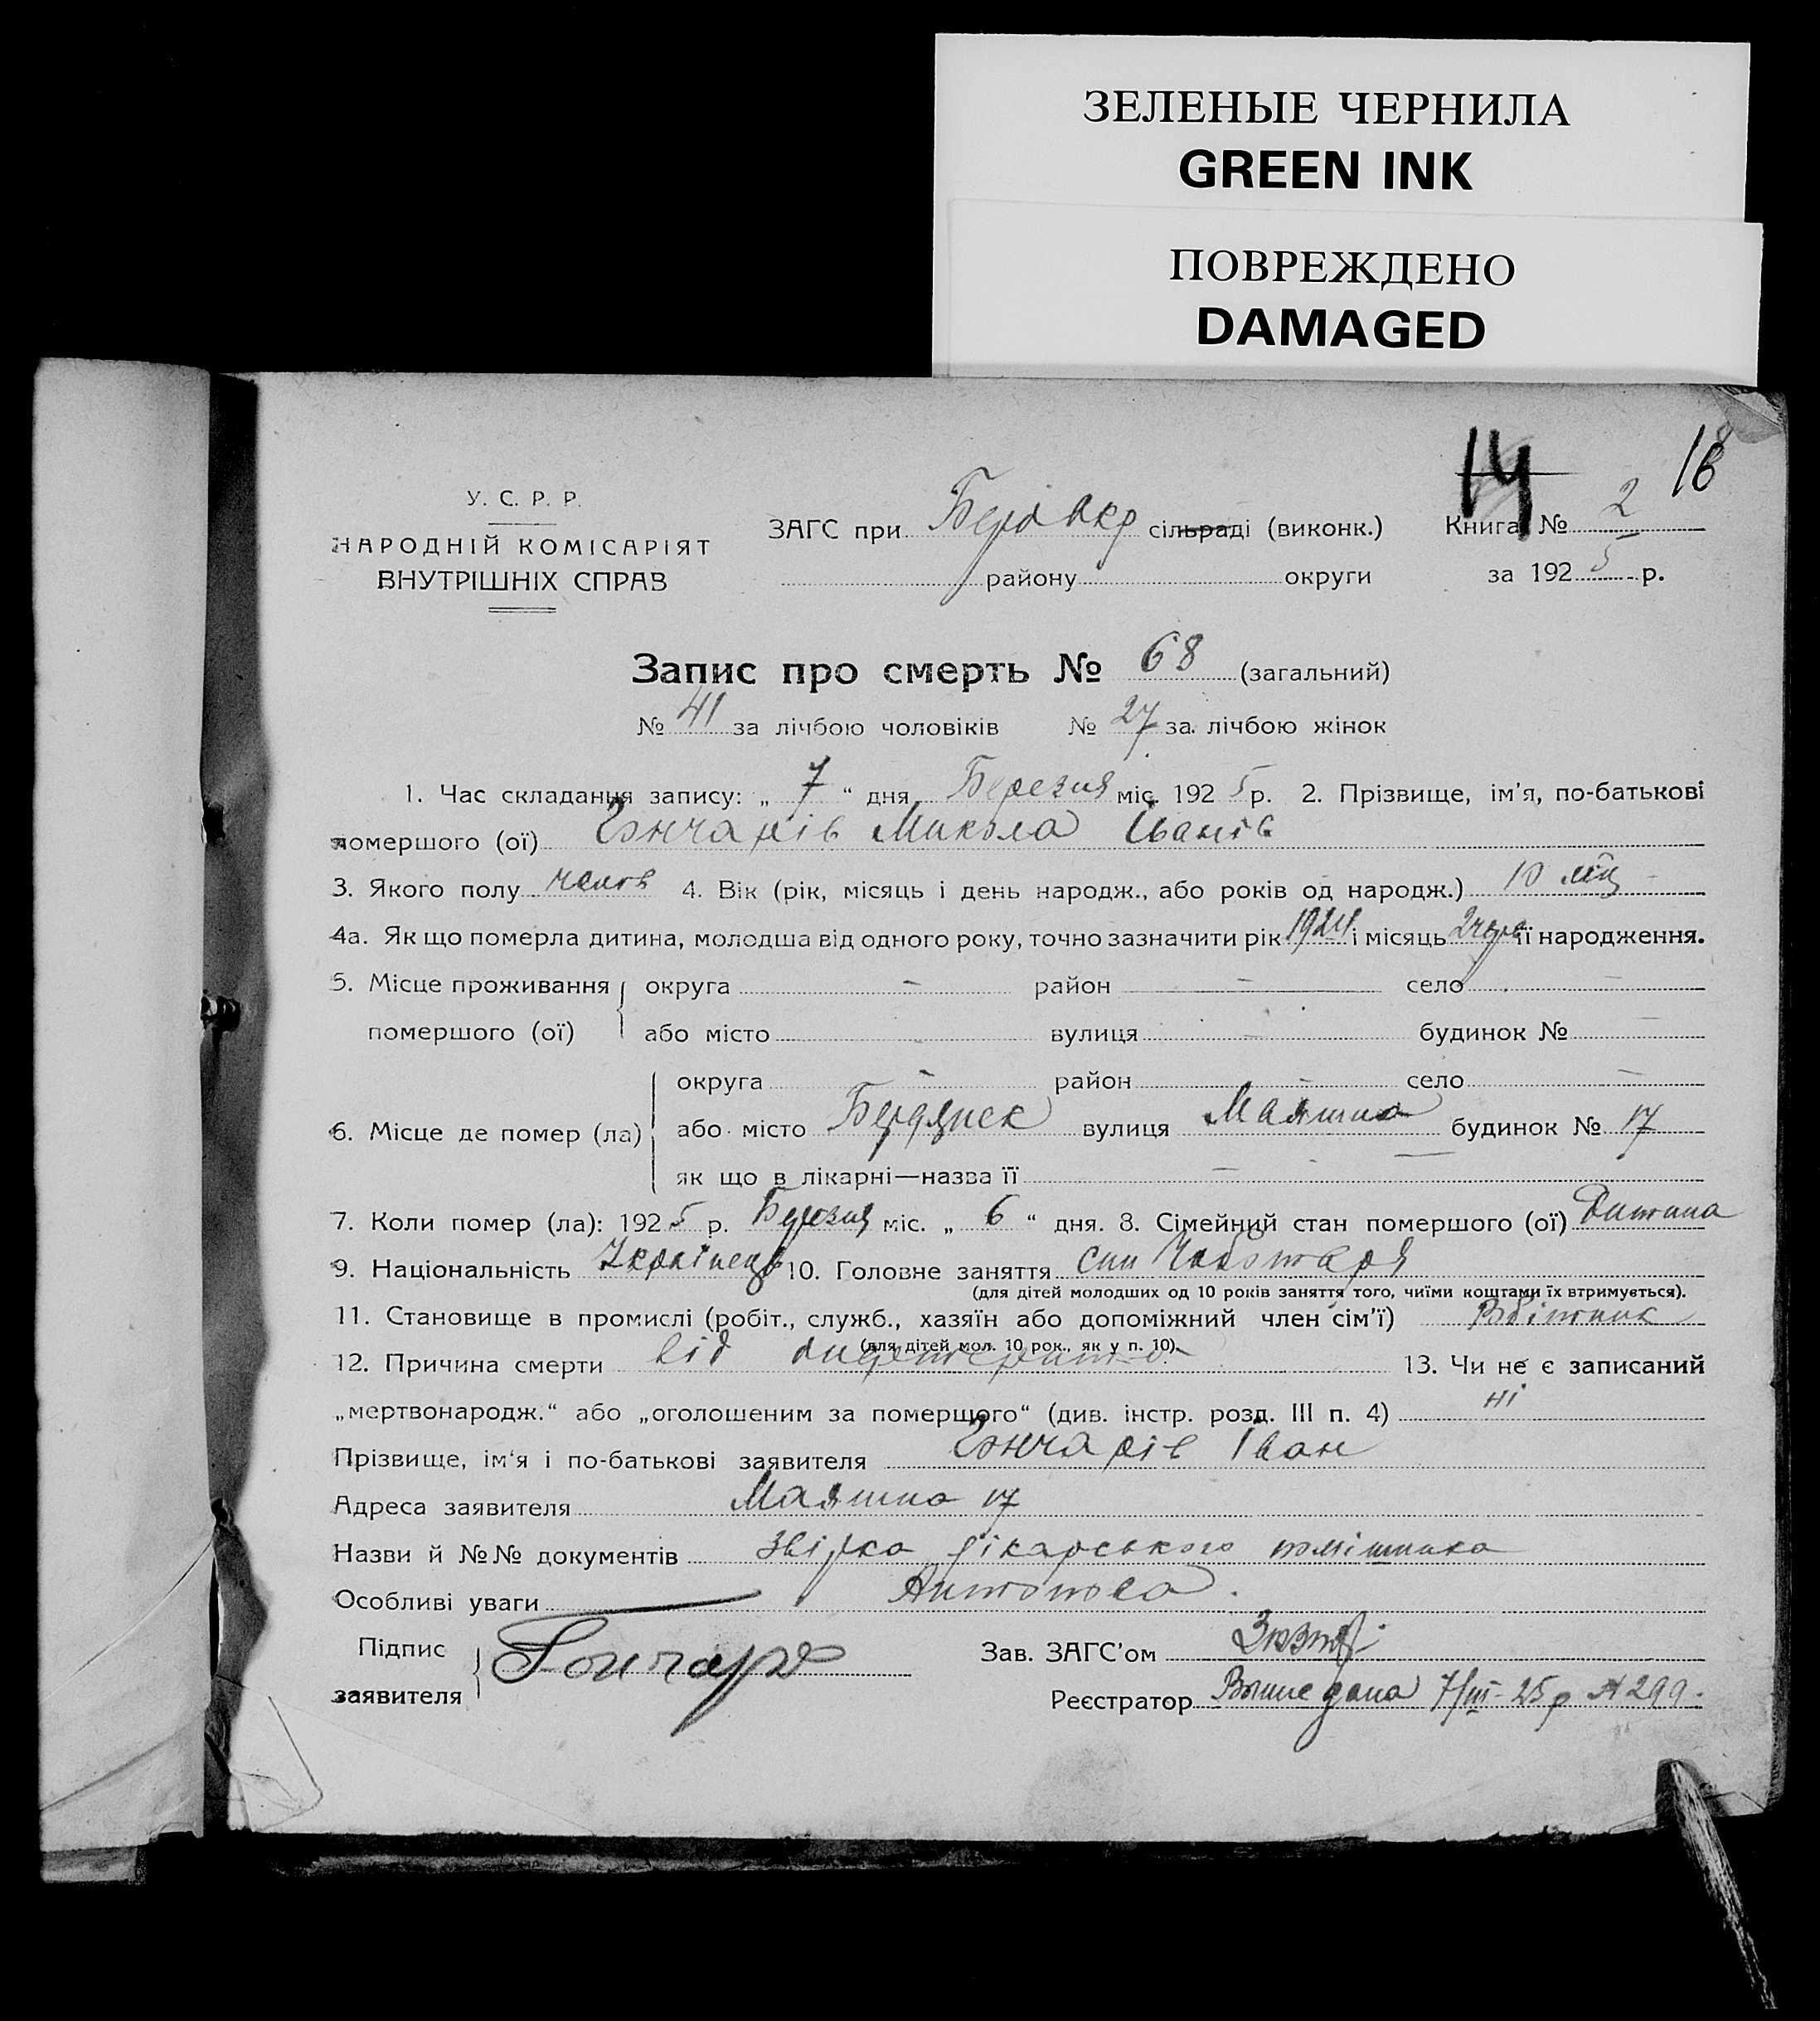 ЗЕЛЕНЫЕ ЧЕРНИЛА
GREEN INK
ПОВРЕЖДЕНО
DAMAGED
14 18
У. С. Р. Р.
НАРОДНІЙ КОМІСАРІЯТ
ВНУТРІШНІХ СПРАВ
ЗАГС при сільраді (виконк.) Книга № 2
району округи за 1925 р.
Запис про смерть № 68 (загальний)
№ 41 за лічбою чоловіків № 27 за лічбою жінок
1. Час складання запису: „ 7 “ дня Березня міс. 1925 р. 2. Прізвище, ім'я, по-батькові
помершого (ої) Гончарів Микола Іванів
3. Якого полу чолов 4. Вік (рік, місяць і день народж., або років од народж.) 10 міс
4а. Як що померла дитина, молодша від одного року, точно зазначити рік 1924 і місяць її народження.
5. Місце проживання округа — район — село —
помершого (ої) або місто — вулиця — будинок № —
округа — район — село —
6. Місце де помер (ла) або місто Бердянск вулиця будинок № 17
як що в лікарні—назва її —
7. Коли помер (ла): 1925 р. Березня міс. „ 6 “ дня. 8. Сімейний стан помершого (ої) Дитина
9. Національність Українець 10. Головне заняття син Чоботаря
(для дітей молодших од 10 років заняття того, чиїми коштами їх втримується).
11. Становище в промислі (робіт., служб., хазяїн або допоміжний член сім'ї) Робітник
(для дітей мол. 10 рок., як у п. 10).
12. Причина смерти від 13. Чи не є записаний
„мертвонародж.“ або „оголошеним за померщого“ (див. інстр. розд. III п. 4) ні
Прізвище, ім'я і по-батькові заявителя Гончарів Іван
Адреса заявителя 17
Назви й №№ документів лікарського помішника
Особливі уваги Антонова.
Підпис
заявителя Гончаров
Зав. ЗАГС'ом
Реєстратор 7/III-25 р № 299.